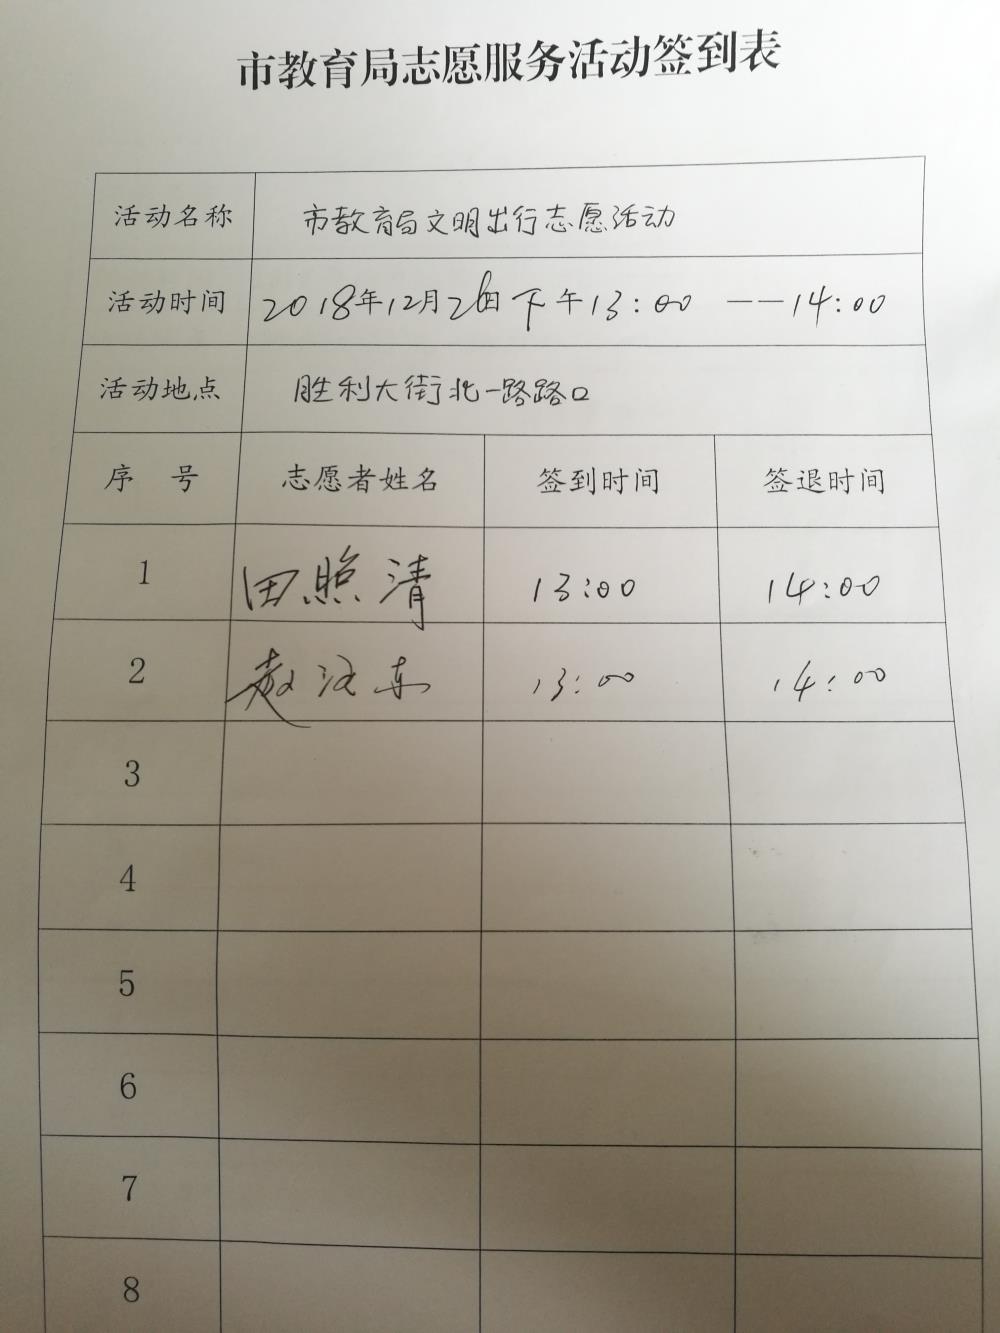 市教育局志愿服务活动签到表
活动名称 市教育局文明出行志愿活动
活动时间 2018年12月26日下午13:00 ——14:00
活动地点 胜利大街北一路路口
序 号 志愿者姓名 签到时间 签退时间
1 田照清 13:00 14:00
2 赵 东 13:00 14:00
3
4
5
6
7
8